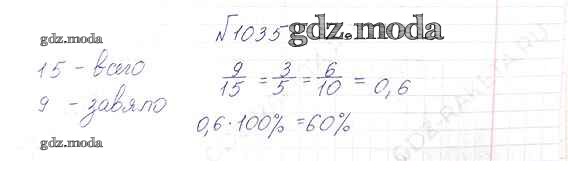 №1035
gdz.moda
gdz.moda
15 - всего
9 - завяло
9/15 = 3/5 = 6/10 = 0,6
0,6·100% = 60%
gdz.moda
GDZ-RAKETA.RU